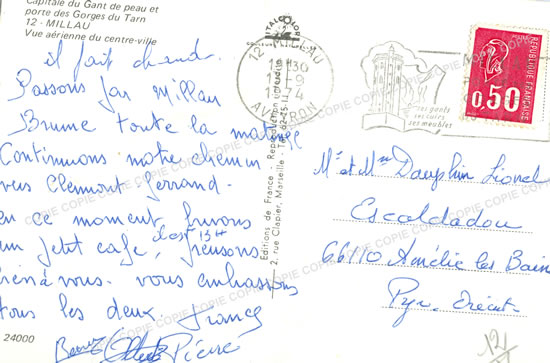 Capitale du Gant de peau et
porte des Gorges du Tarn
12 - MILLAU
Vue aérienne du centre-ville
il fait chaud.
Passons par Millau
Brume toute la matinée
Continuons notre chemin
vers Clermont-Ferrand.
en ce moment, buvons
un petit café, il est 13H
pensons
bien à vous. vous embrassons
tous les deux. Francy
Pierre
24000
ITALCOLOR
12 MILLAU
AVEYRON
Editions de France - Reproduction interdite
2, rue Clapier, Marseille
ses gants
ses cuirs
ses meubles
RÉPUBLIQUE FRANÇAISE
0,50
Mr et Mme Dauphin Lionel
Escaldadou
66110 Amélie les Bains
Pyr. Orient.
COPIE COPIE COPIE COPIE